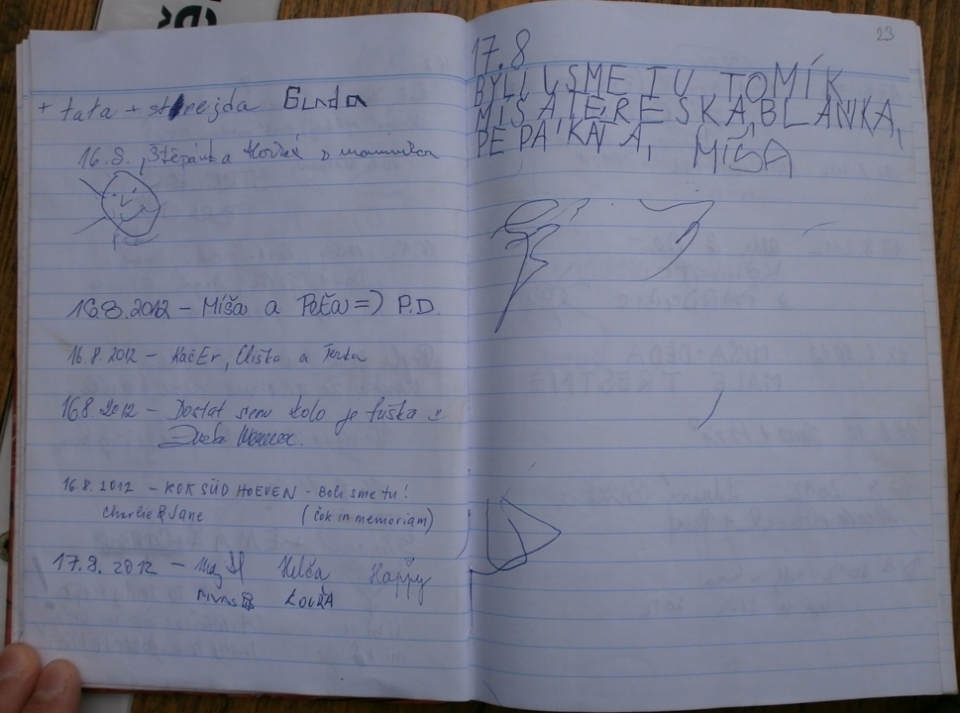 + tata + strejda Gunda
16.8., Štěpánka s maminkou
16.8.2012 – Míša a Peťa =) P.D.
16.8.2012 – KačEr, Eliška a Terka
16.8.2012 – Dostat sem kolo je fuška
16.8.2012 – KOK SÜD HOEVEN – Boli sme tu!
Charlie & Jane (Čok in memoriam)
17.8.2012 – Helča Happy
LOUŽA
23
17.8
BYLI JSME TU TOMÍK
MÍŠA TEREŠKA, BLANKA,
PEPA KÁTA, MÍŠA